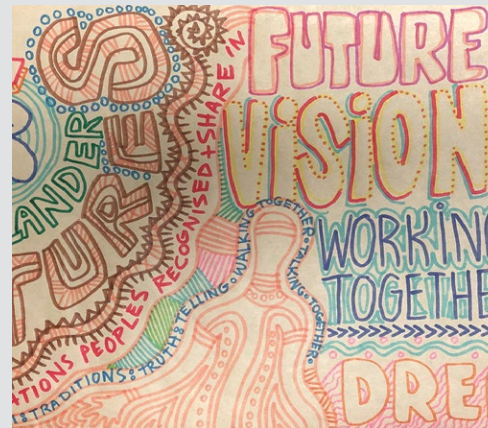 FUTURE
VISION
WORKING
TOGETHE
DRE
LANDER
TURES
ATIONS PEOPLES RECOGNISED + SHARE IN
: TRADITIONS : TRUTH : TELLING • WALKING TOGETHER • TALKING • TOGETHER.